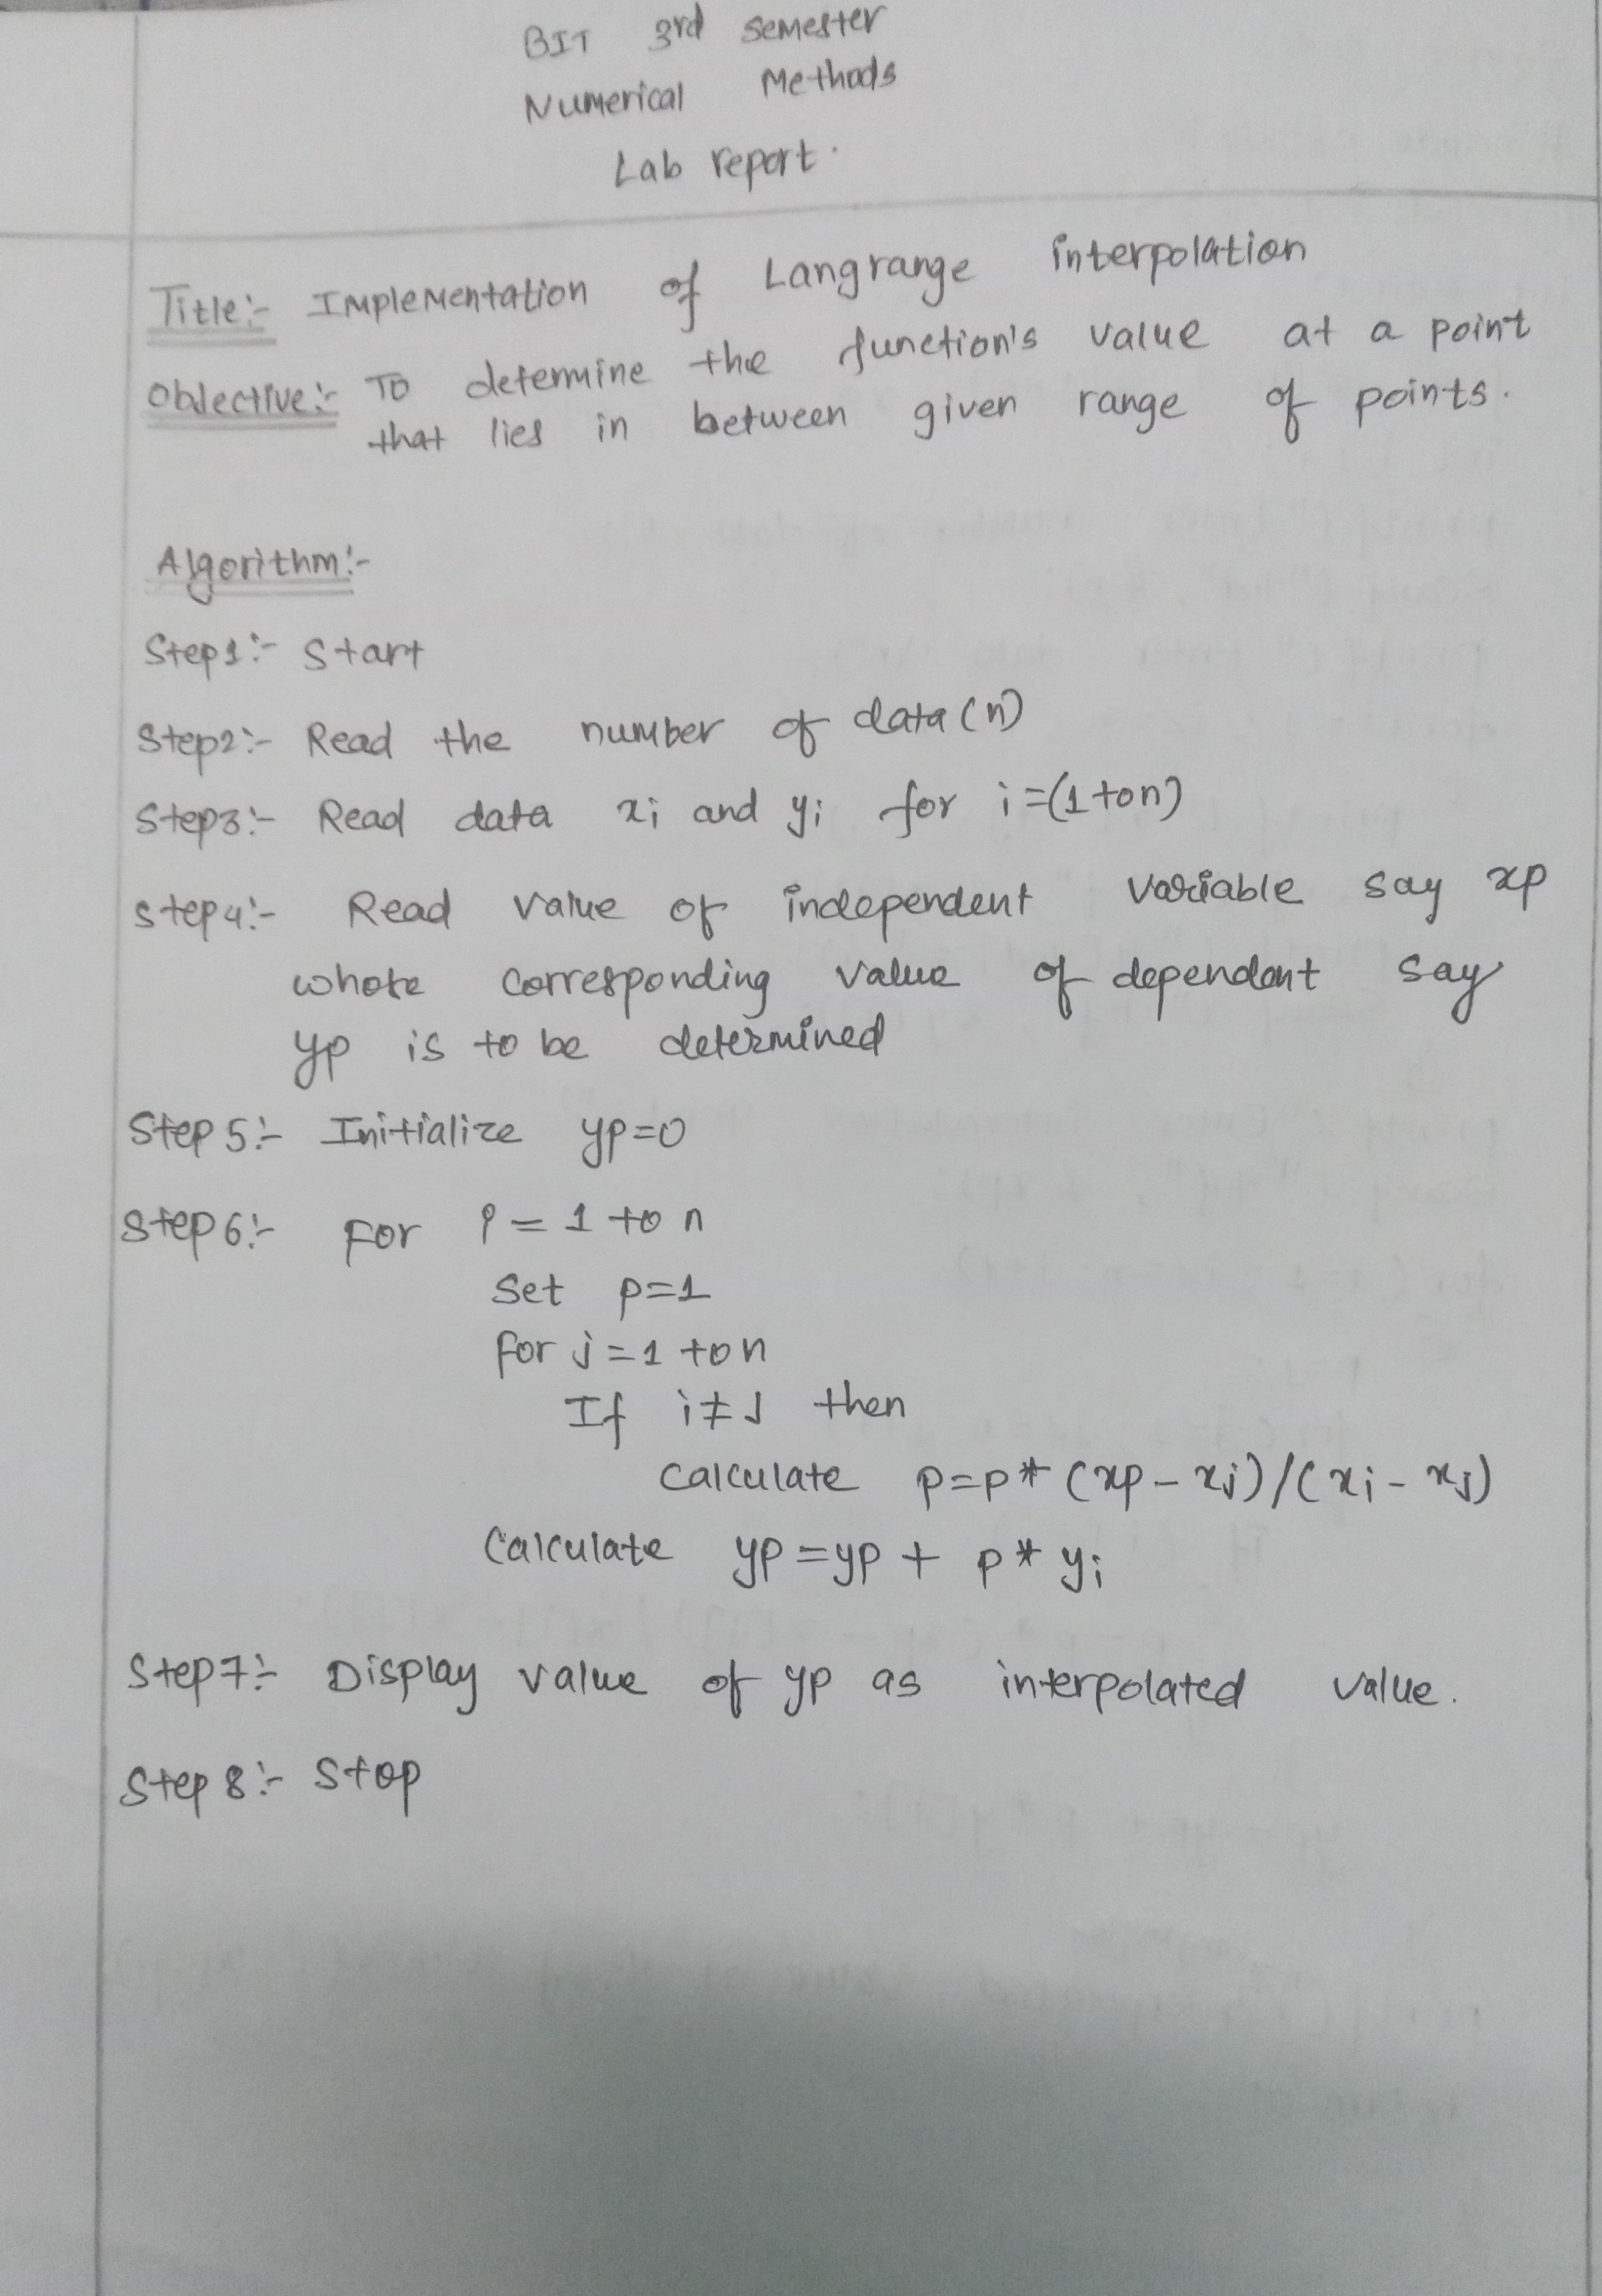 BIT 3rd semester
Numerical Methods
Lab report.
Title:- Implementation of Langrange interpolation
Objective:- To determine the function's value at a point
that lies in between given range of points.
Algorithm:-
Step1:- Start
Step2:- Read the number of data (n)
Step3:- Read data xi and yi for i=(1 to n)
Step4:- Read value of independent variable say xp
whose corresponding value of dependent say
yp is to be determined
Step 5:- Initialize yp=0
Step 6:- For i = 1 to n
Set p=1
for j=1 to n
If i≠j then
calculate p=p* (xp - xj)/(xi - xj)
Calculate yp=yp + p* yi
Step7:- Display value of yp as interpolated value.
Step 8:- Stop